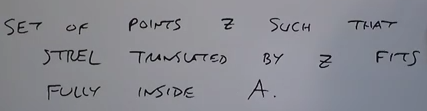 SET OF POINTS Z SUCH THAT
STREL TRANSLATED BY Z FITS
FULLY INSIDE A.